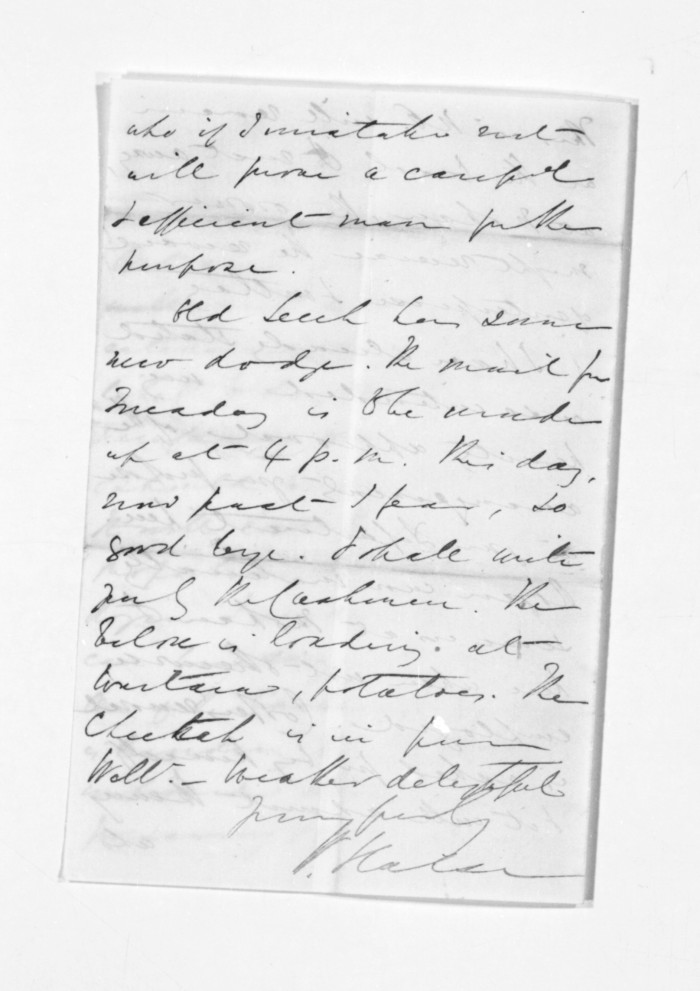 who if I mistake not
will prove a careful
& efficient man for the
purpose.
Old Leech has some
new dodge. The mail for
Tuesday is to be made
up at 4 p.m. this day,
now past I fear, so
good bye. I shall write
you by the Cashmere. The
is loading at
Waitara, potatoes. The
Cheetah is in from
Well. — Weather delightful